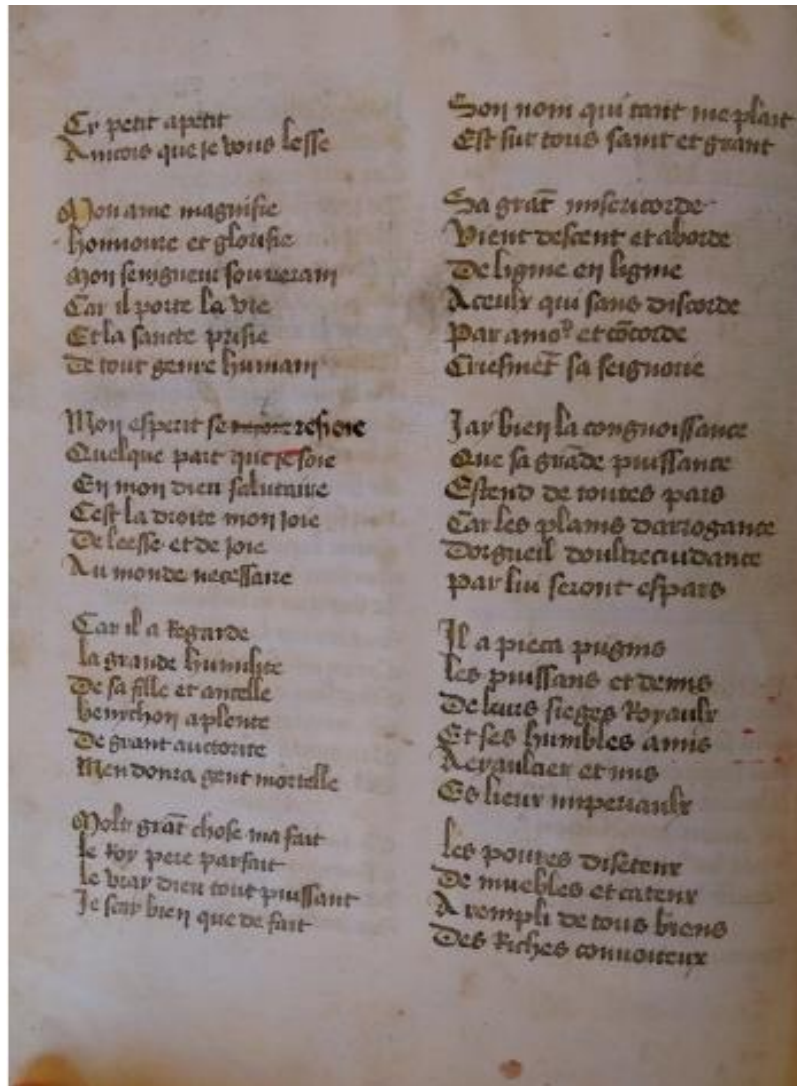 Cy petit apetit
Aincois que je vous lesse
Mon ame magnifie
honnoure et glorifie
Mon seingneur souverain
Car il porte la vie
Et la sancte prisie
De tout genre humain
Mon esperit se resioie
Quelque part que je soie
En mon dieu salutaire
Cest la droite mon joie
De leesse et de joie
Au monde necessaire
Car il a Regarde
la grande humilite
De sa fille et ancelle
benichon a plente
De grant auctorite
Men donra gent mortelle
Molt grāt chose ma fait
le Roy pere parfait
le vray dieu tout puissant
Je scay bien que de fait
Son nom qui tant me plait
Est sur tous saint et grant
Sa grāt misericorde
Vient descent et aborde
De lignie en lignie
A ceulx qui sans discorde
Par amo² et cōcorde
sa seignorie
Jay bien la congnoissance
Que sa grāde puissance
Estend de toutes pars
Car les plains darrogance
Dorgueil doultrecuidance
Par lui seront espars
Il a pieca pugnis
les puissans et demis
De leurs sieges Royaulx
Et ses humbles amis
A et mis
Es lieux imperiaulx
les povres diseteux
De muebles et cateux
A rempli de tous biens
Des Riches convoiteux